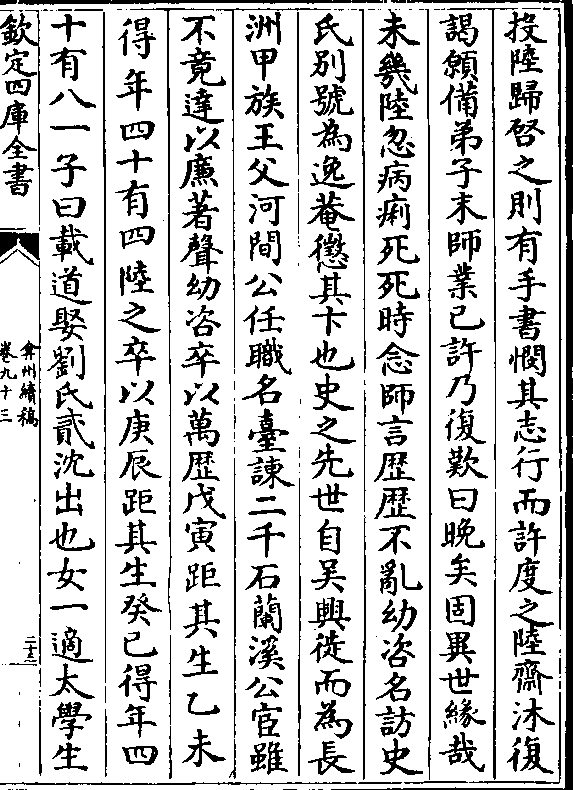 投陸歸啓之則有手書憫其志行而許度之陸齋沐復
謁願備弟子末師業已許乃復歎曰晚矣固異世緣哉
未幾陸忽病痢死死時念師言歷歷不亂幼咨名訪史
氏别號為逸菴懲其卞也史之先世自吴興徙而為長
洲甲族王父河間公任職名臺諫二千石蘭溪公宦雖
不竟達以亷著聲幼咨卒以萬歴戊寅距其生乙未
得年四十有四陸之卒以庚辰距其生癸已得年四
十有八一子曰載道娶劉氏貳沈出也女一適太學生
欽定四庫全書
弇州續稿
卷九十三
二十三